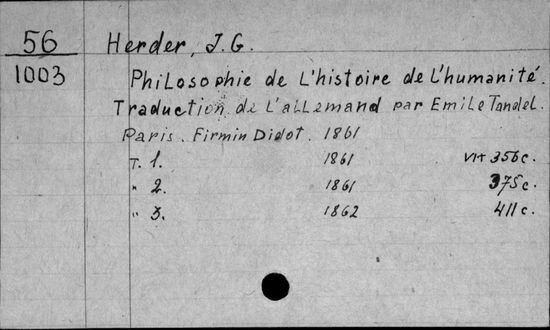 56 Herder, J.G.
1003 Philosophie de l'histoire de l'humanité.
Traduction de l'allemand par Emile Tandel.
Paris. Firmin Didot. 1861
T. 1. 1861 VI+356c.
" 2. 1861 375c.
" 3. 1862 411c.